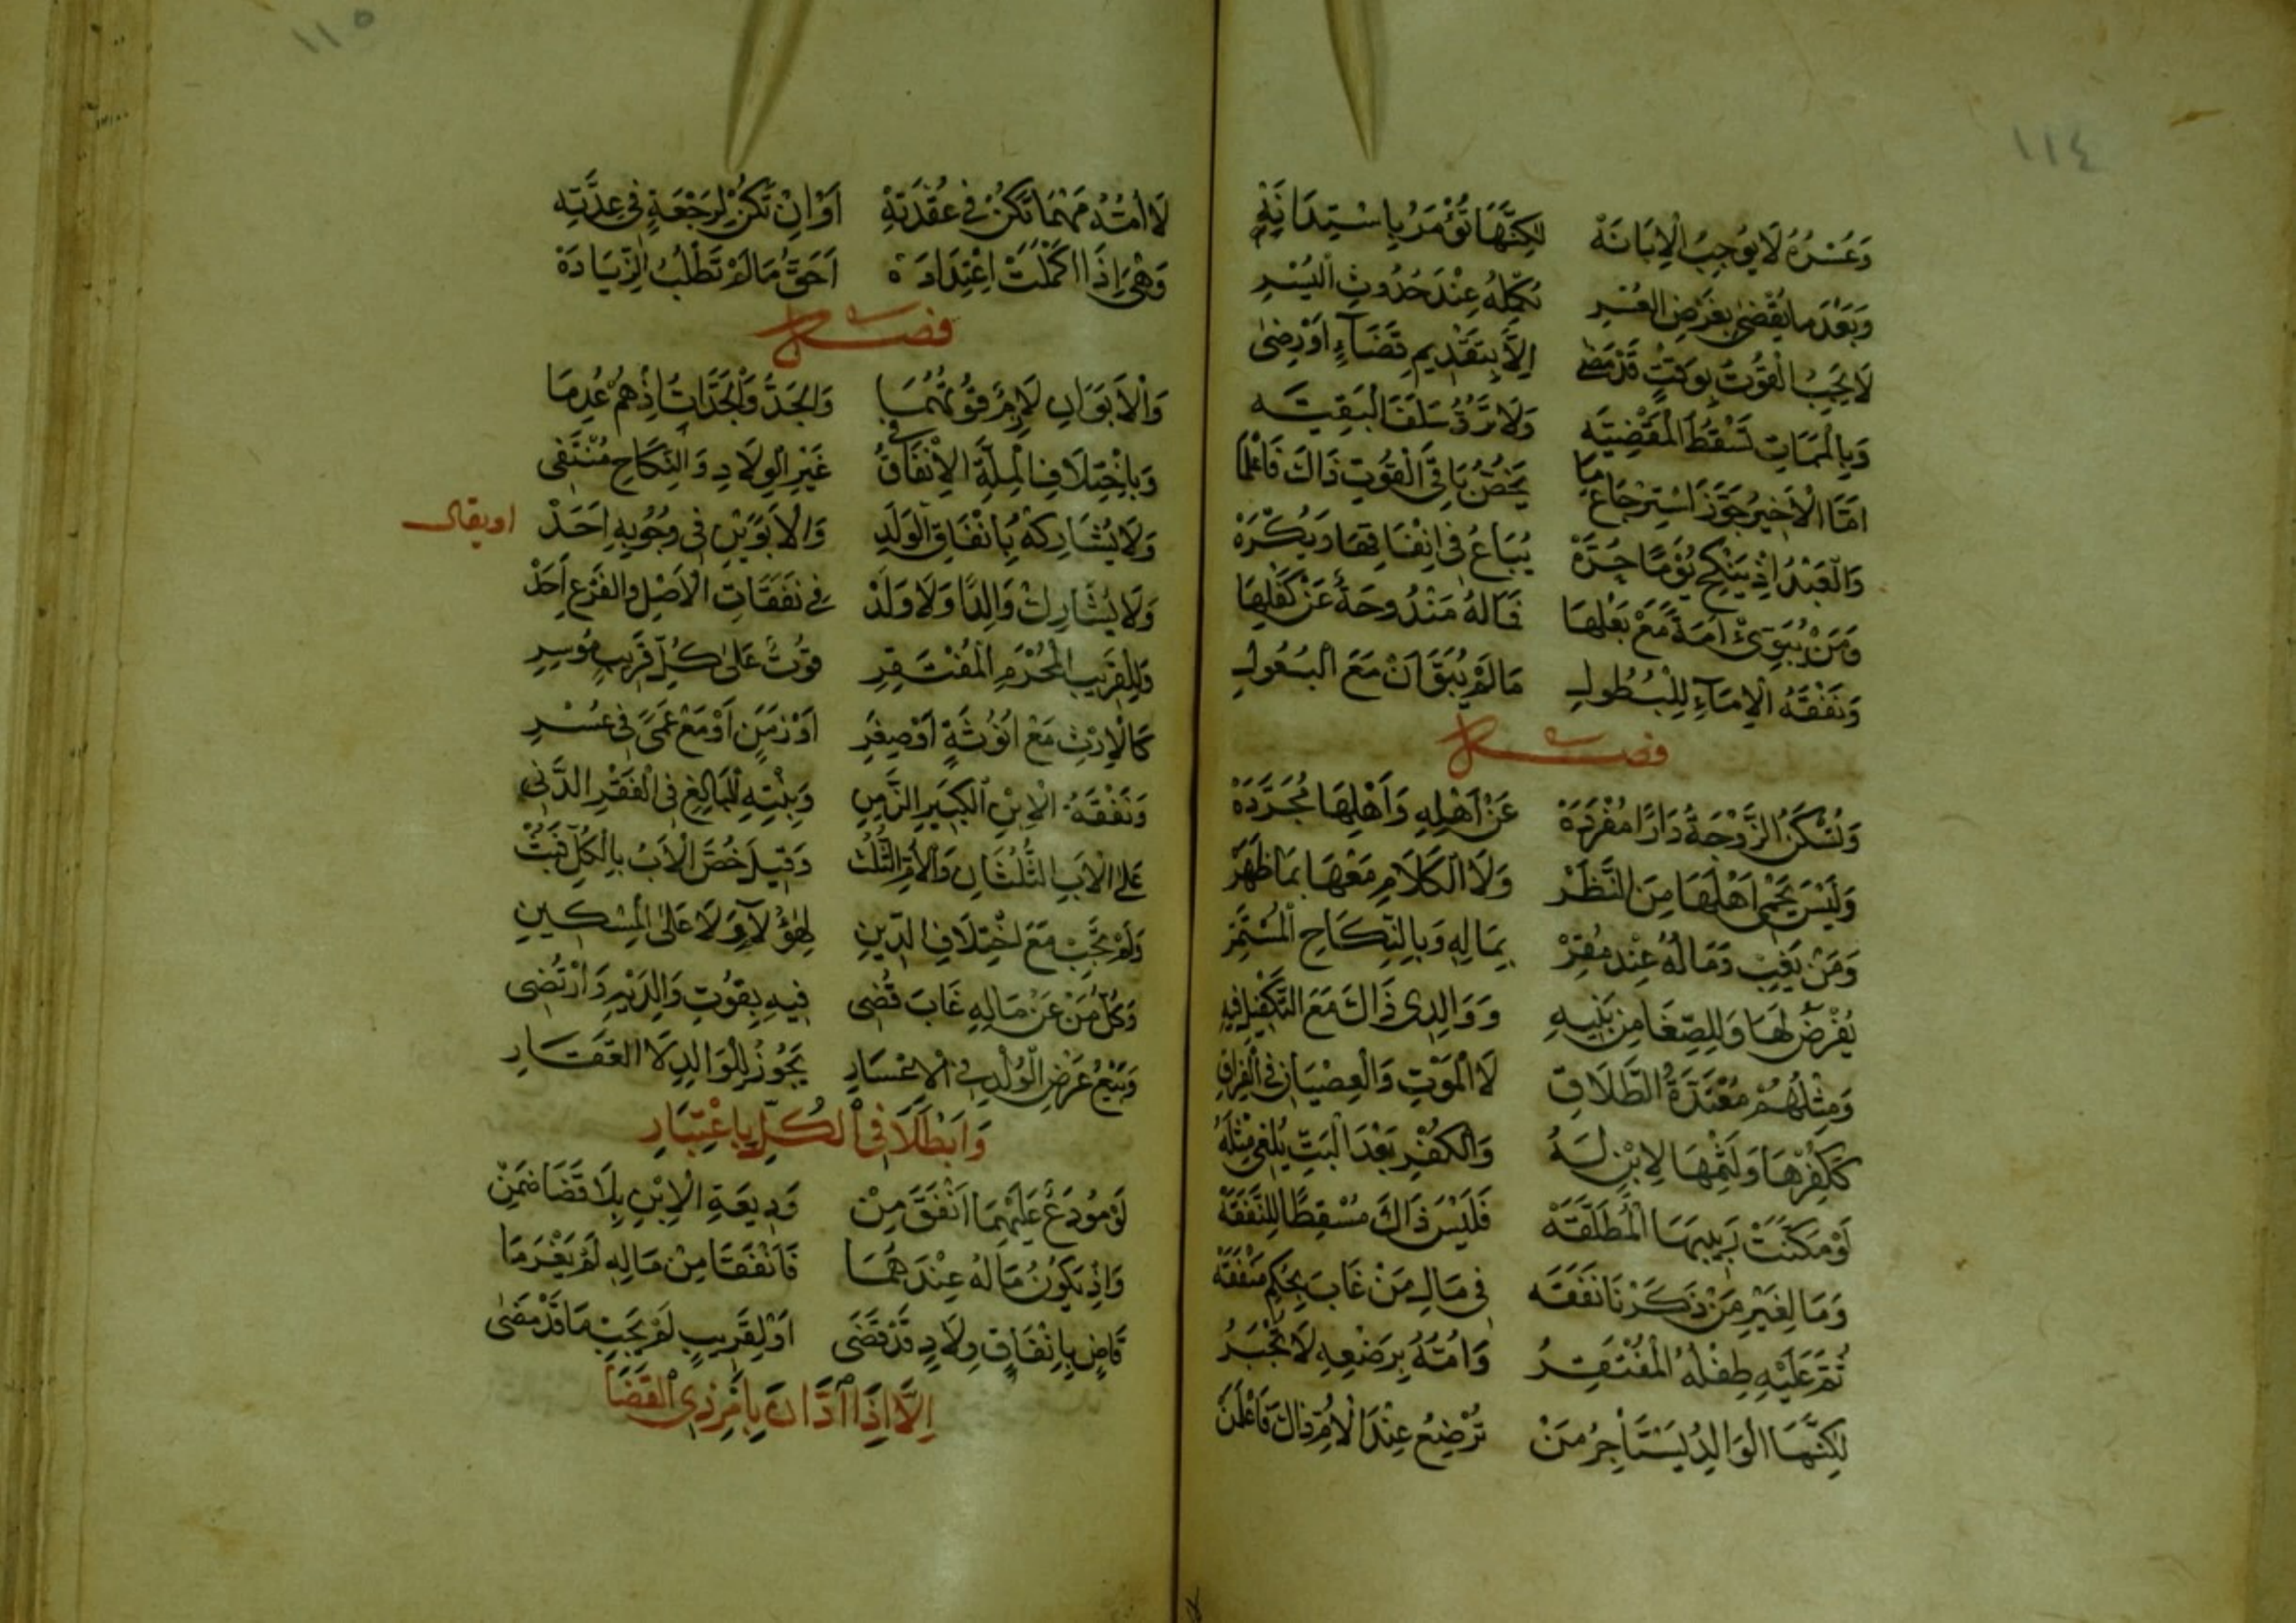 ١١٤
وَعُسْرُهُ لَا يُوجِبُ الْاِبَانَهْ لٰكِنَّهَا تُؤْمَرُ بِاسْتِدَانَهْ
وَبَعْدَ مَا يُقْضٰى بِفَرْضِ الْعُسْرِ تُكْمِلُهُ عِنْدَ حُدُوثِ الْيُسْرِ
لَا يَجِبُ الْقُوْتُ بِوَقْتٍ قَدْ مَضٰى اِلَّا بِتَقْدِيمِ قَضَاءٍ اَوْ رِضٰى
وَبِالْمَمَاتِ تَسْقُطُ الْمَقْضِيَّه وَلَا تَرُدُّ سَلَفًا لِبَقِيَّه
اَمَّا الْاَخِيرُ جَوَّزَ اسْتِرْجَاعَ مَا يَخُصُّ بَاقِى الْقُوْتِ ذَاكَ فَاعْلَمَا
وَالْعَبْدُ اِذْ يَنْكِحُ يَوْمًا حُرَّهْ يُبَاعُ فِى اِنْفَاقِهَا وَيُكْرَهْ
وَمَنْ يُبَوِّئْ اَمَةً مَعْ بَعْلِهَا فَمَا لَهُ مَنْدُوحَةٌ عَنْ كَفْلِهَا
وَنَفْقَهُ الْاِمَاءِ لِلْبُطُولِ مَا لَمْ يُبَوَّأْنَ مَعَ الْبُعُولِ
فصل
وَتُسْكَنُ الزَّوْجَةُ دَارًا مُفْرَدَهْ عَنْ اَهْلِهِ وَاَهْلِهَا مُجَرَّدَهْ
وَلَيْسَ يَحْمِى اَهْلَهَا مِنَ النَّظَرْ وَلَا الْكَلَامِ مَعْهَا بِمَا ظَهَرْ
وَمَنْ يَغِبْ وَمَالُهُ عِنْدَ مُقِرّْ بِمَالِهِ وَبِالنِّكَاحِ الْمُسْتَمِرّْ
يُفْرَضُ لَهَا وَلِلصِّغَا مِنْ بَنِيهِ وَوَالِدِى ذَاكَ مَعَ التَّكْفِيلِ فِيهِ
وَمِثْلُهُمْ مُعْتَدَّةُ الطَّلَاقِ لَا الْمَوْتِ وَالْعِصْيَانِ فِى الْفِرَاقِ
كَكُفْرِهَا وَلَثْمِهَا لِابْنٍ لَهُ وَالْكُفْرُ بَعْدَ الْبَتِّ يُلْغِى مِثْلَهُ
اَوْ مَكَّنَتْ رَبِيبَهَا الْمُطَلَّقَهْ فَلَيْسَ ذَاكَ مُسْقِطًا لِلنَّفَقَهْ
وَمَا لِغَيْرِ مَنْ ذَكَرْنَا نَفَقَه فِى مَالِ مَنْ غَابَ بِحُكْمٍ
ثُمَّ عَلَيْهِ طِفْلُهُ الْمُفْتَقِرُ وَاُمُّهُ بِرَضْعِهِ لَا تُجْبَرُ
لٰكِنَّهَا الْوَالِدُ يَسْتَأْجِرُ مَنْ تُرْضِعُ عِنْدَ الْاُمِّ ذَاكَ فَاعْلَمَنْ
١١٥
لَا اُمُّهُ مَهْمَا تَكُنْ فِى عُقْدَتِهْ اَوْ اِنْ تَكُنْ لِرَجْعَةٍ فِى عِدَّتِهْ
وَهْىَ اِذَا اكْمَلَتْ اِعْتِدَادَهْ اَحَقُّ مَا لَمْ تَطْلُبُ الزِّيَادَهْ
فصل
وَالْاَبَوَانِ لَازِمٌ قُوتُهُمَا وَالْجَدُّ وَالْجَدَّاتُ اِذْ هُمْ عُدِمَا
وَبِاخْتِلَافِ الْمِلَّةِ الْاِنْفَاقُ فِى غَيْرِ الْوِلَادِ وَالنِّكَاحِ مُنْتَفِى
وَلَا يُشَارِكْهُ بِاِنْفَاقِ الْوَلَدِ وَالْاَبَوَيْنِ فِى وُجُوبِهِ اَحَدْ
او يقال
وَلَا يُشَارِكْ وَالِدًا وَلَا وَلَدْ فِى نَفَقَاتِ الْاَصْلِ وَالْفَرْعِ اَحَدْ
وَلِلْقَرِيبِ الْمَحْرَمِ الْمُفْتَقِرِ قُوْتٌ عَلٰى كُلِّ قَرِيبٍ مُوسِرِ
كَالْاِرْثِ مَعْ اُنُوثَةٍ اَوْ صِغَرِ اَوْ زَمَنٍ اَوْ مَعْ عَمًى فِى عُسْرِ
وَنَفْقَهُ الْاِبْنِ الْكَبِيرِ الزَّمِنِ وَبِنْتِهِ الْبَالِغِ فِى الْفَقْرِ الدَّنِى
عَلَى الْاَبِ الثُّلْثَانِ وَالْاُمِّ الثُّلُثْ وَقِيلَ خُصَّ الْاَبُ بِالْكُلِّ
وَلَمْ تَجِبْ مَعَ اخْتِلَافِ الدِّينِ لِهٰؤُلَاءِ وَلَا عَلَى الْمِسْكِينِ
وَكُلُّ مَنْ عَنْ مَالِهِ غَابَ قُضِى فِيهِ بِقُوْتِ وَالِدَيْهِ وَارْتُضِى
وَبَيْعُ عَرْضِ الْوُلْدِ فِى الْاِعْسَارِ يَجُوزُ لِلْوَالِدِ لَا الْعَقَارِ
وَابْطَلَا فِى الْكُلِّ بِاعْتِبَارِ
لَوْ مُودَعٌ عَلَيْهِمَا اَنْفَقَ مِنْ وَدِيعَةِ الْاِبْنِ بِلَا قَضَا ضَمِنْ
وَاِذْ يَكُونُ مَالُهُ عِنْدَهُمَا فَاَنْفَقَا مِنْ مَالِهِ لَمْ يَغْرَمَا
قَاضٍ بِاِنْفَاقِ وِلَادٍ قَدْ قَضَى اَوْ لِقَرِيبٍ لَمْ يَجِبْ مَا قَدْ مَضٰى
اِلَّا اِذَا ادَّانَ بِاَمْرِ ذِى الْقَضَا